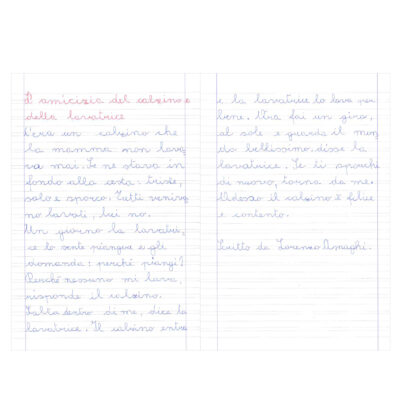 L'amicizia del calzino e
della lavatrice
C'era un calzino che
la mamma non lava
va mai. Se ne stava in
fondo alla cesta triste,
solo e sporco. Tutti veniva
no lavati, lui no.
Un giorno la lavatri
ce lo sente piangere e gli
domanda: perché piangi?
Perché nessuno mi lava,
risponde il calzino.
Salta dentro di me, dice la
lavatrice. Il calzino entra
e la lavatrice lo lava per
bene. Ora fai un giro,
al sole e guarda il mon
do bellissimo. disse la
lavatrice. Se ti sporchi
di nuovo, torna da me.
Adesso il calzino è felice
e contento.
Scritto da Lorenzo Asnaghi.